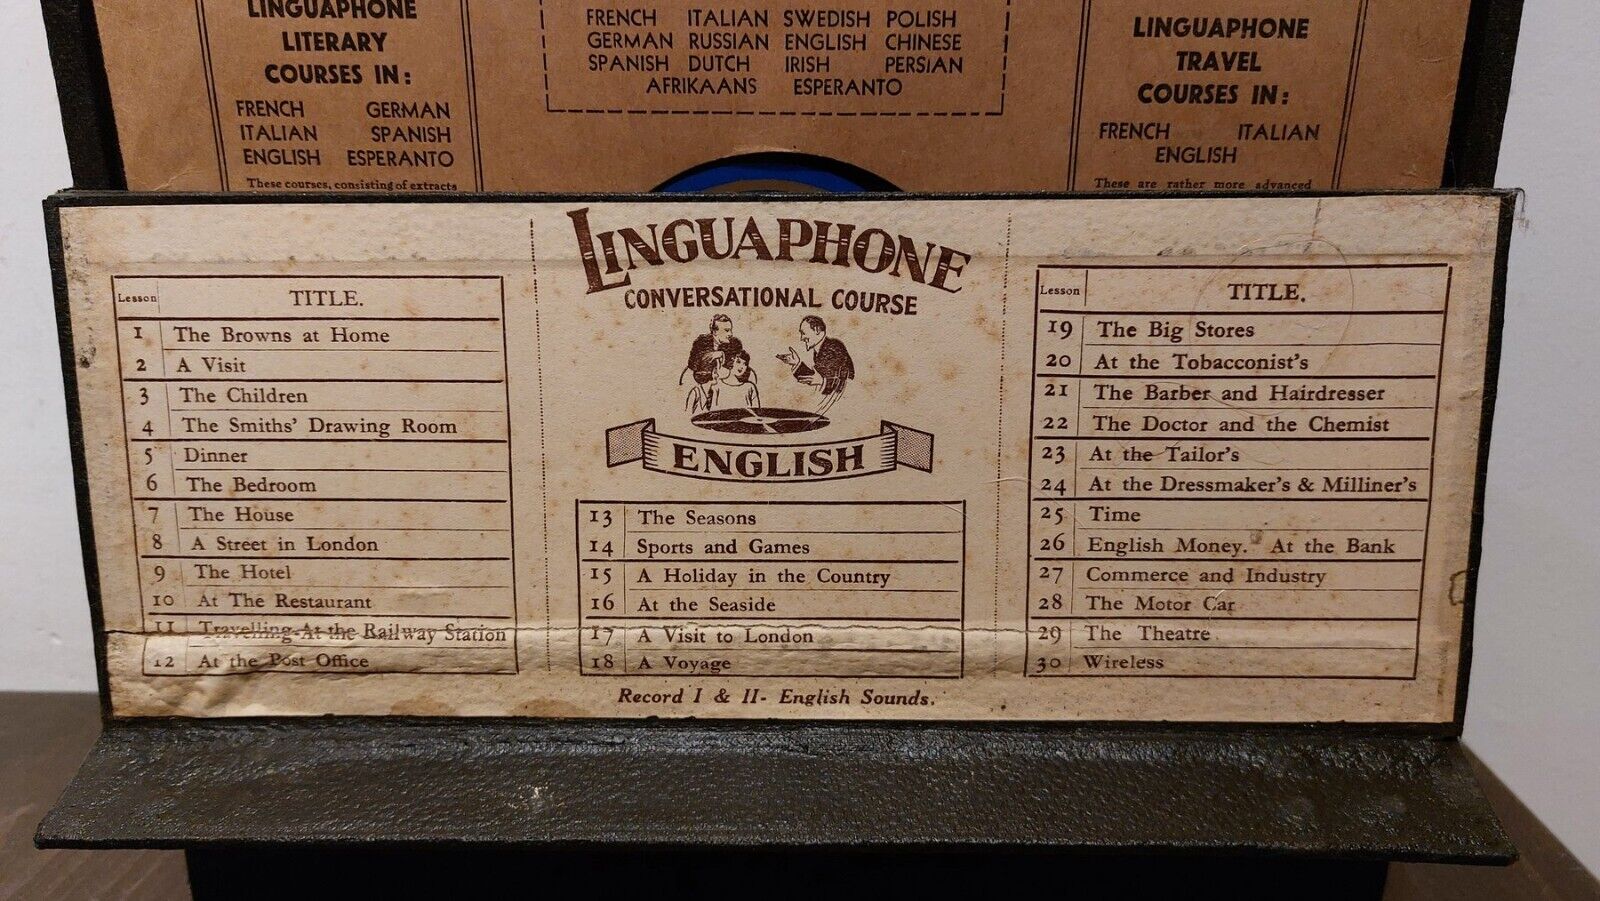 LINGUAPHONE
LITERARY
COURSES IN:
FRENCH GERMAN
ITALIAN SPANISH
ENGLISH ESPERANTO
These courses, consisting of extracts
FRENCH ITALIAN SWEDISH POLISH
GERMAN RUSSIAN ENGLISH CHINESE
SPANISH DUTCH IRISH PERSIAN
AFRIKAANS ESPERANTO
LINGUAPHONE
TRAVEL
COURSES IN:
FRENCH ITALIAN
ENGLISH
These are rather more advanced
LINGUAPHONE
CONVERSATIONAL COURSE
ENGLISH
Lesson TITLE.
1 The Browns at Home
2 A Visit
3 The Children
4 The Smiths' Drawing Room
5 Dinner
6 The Bedroom
7 The House
8 A Street in London
9 The Hotel
10 At The Restaurant
11 Travelling-At the Railway Station
12 At the Post Office
13 The Seasons
14 Sports and Games
15 A Holiday in the Country
16 At the Seaside
17 A Visit to London
18 A Voyage
Lesson TITLE.
19 The Big Stores
20 At the Tobacconist's
21 The Barber and Hairdresser
22 The Doctor and the Chemist
23 At the Tailor's
24 At the Dressmaker's & Milliner's
25 Time
26 English Money. At the Bank
27 Commerce and Industry
28 The Motor Car
29 The Theatre
30 Wireless
Record I & II- English Sounds.